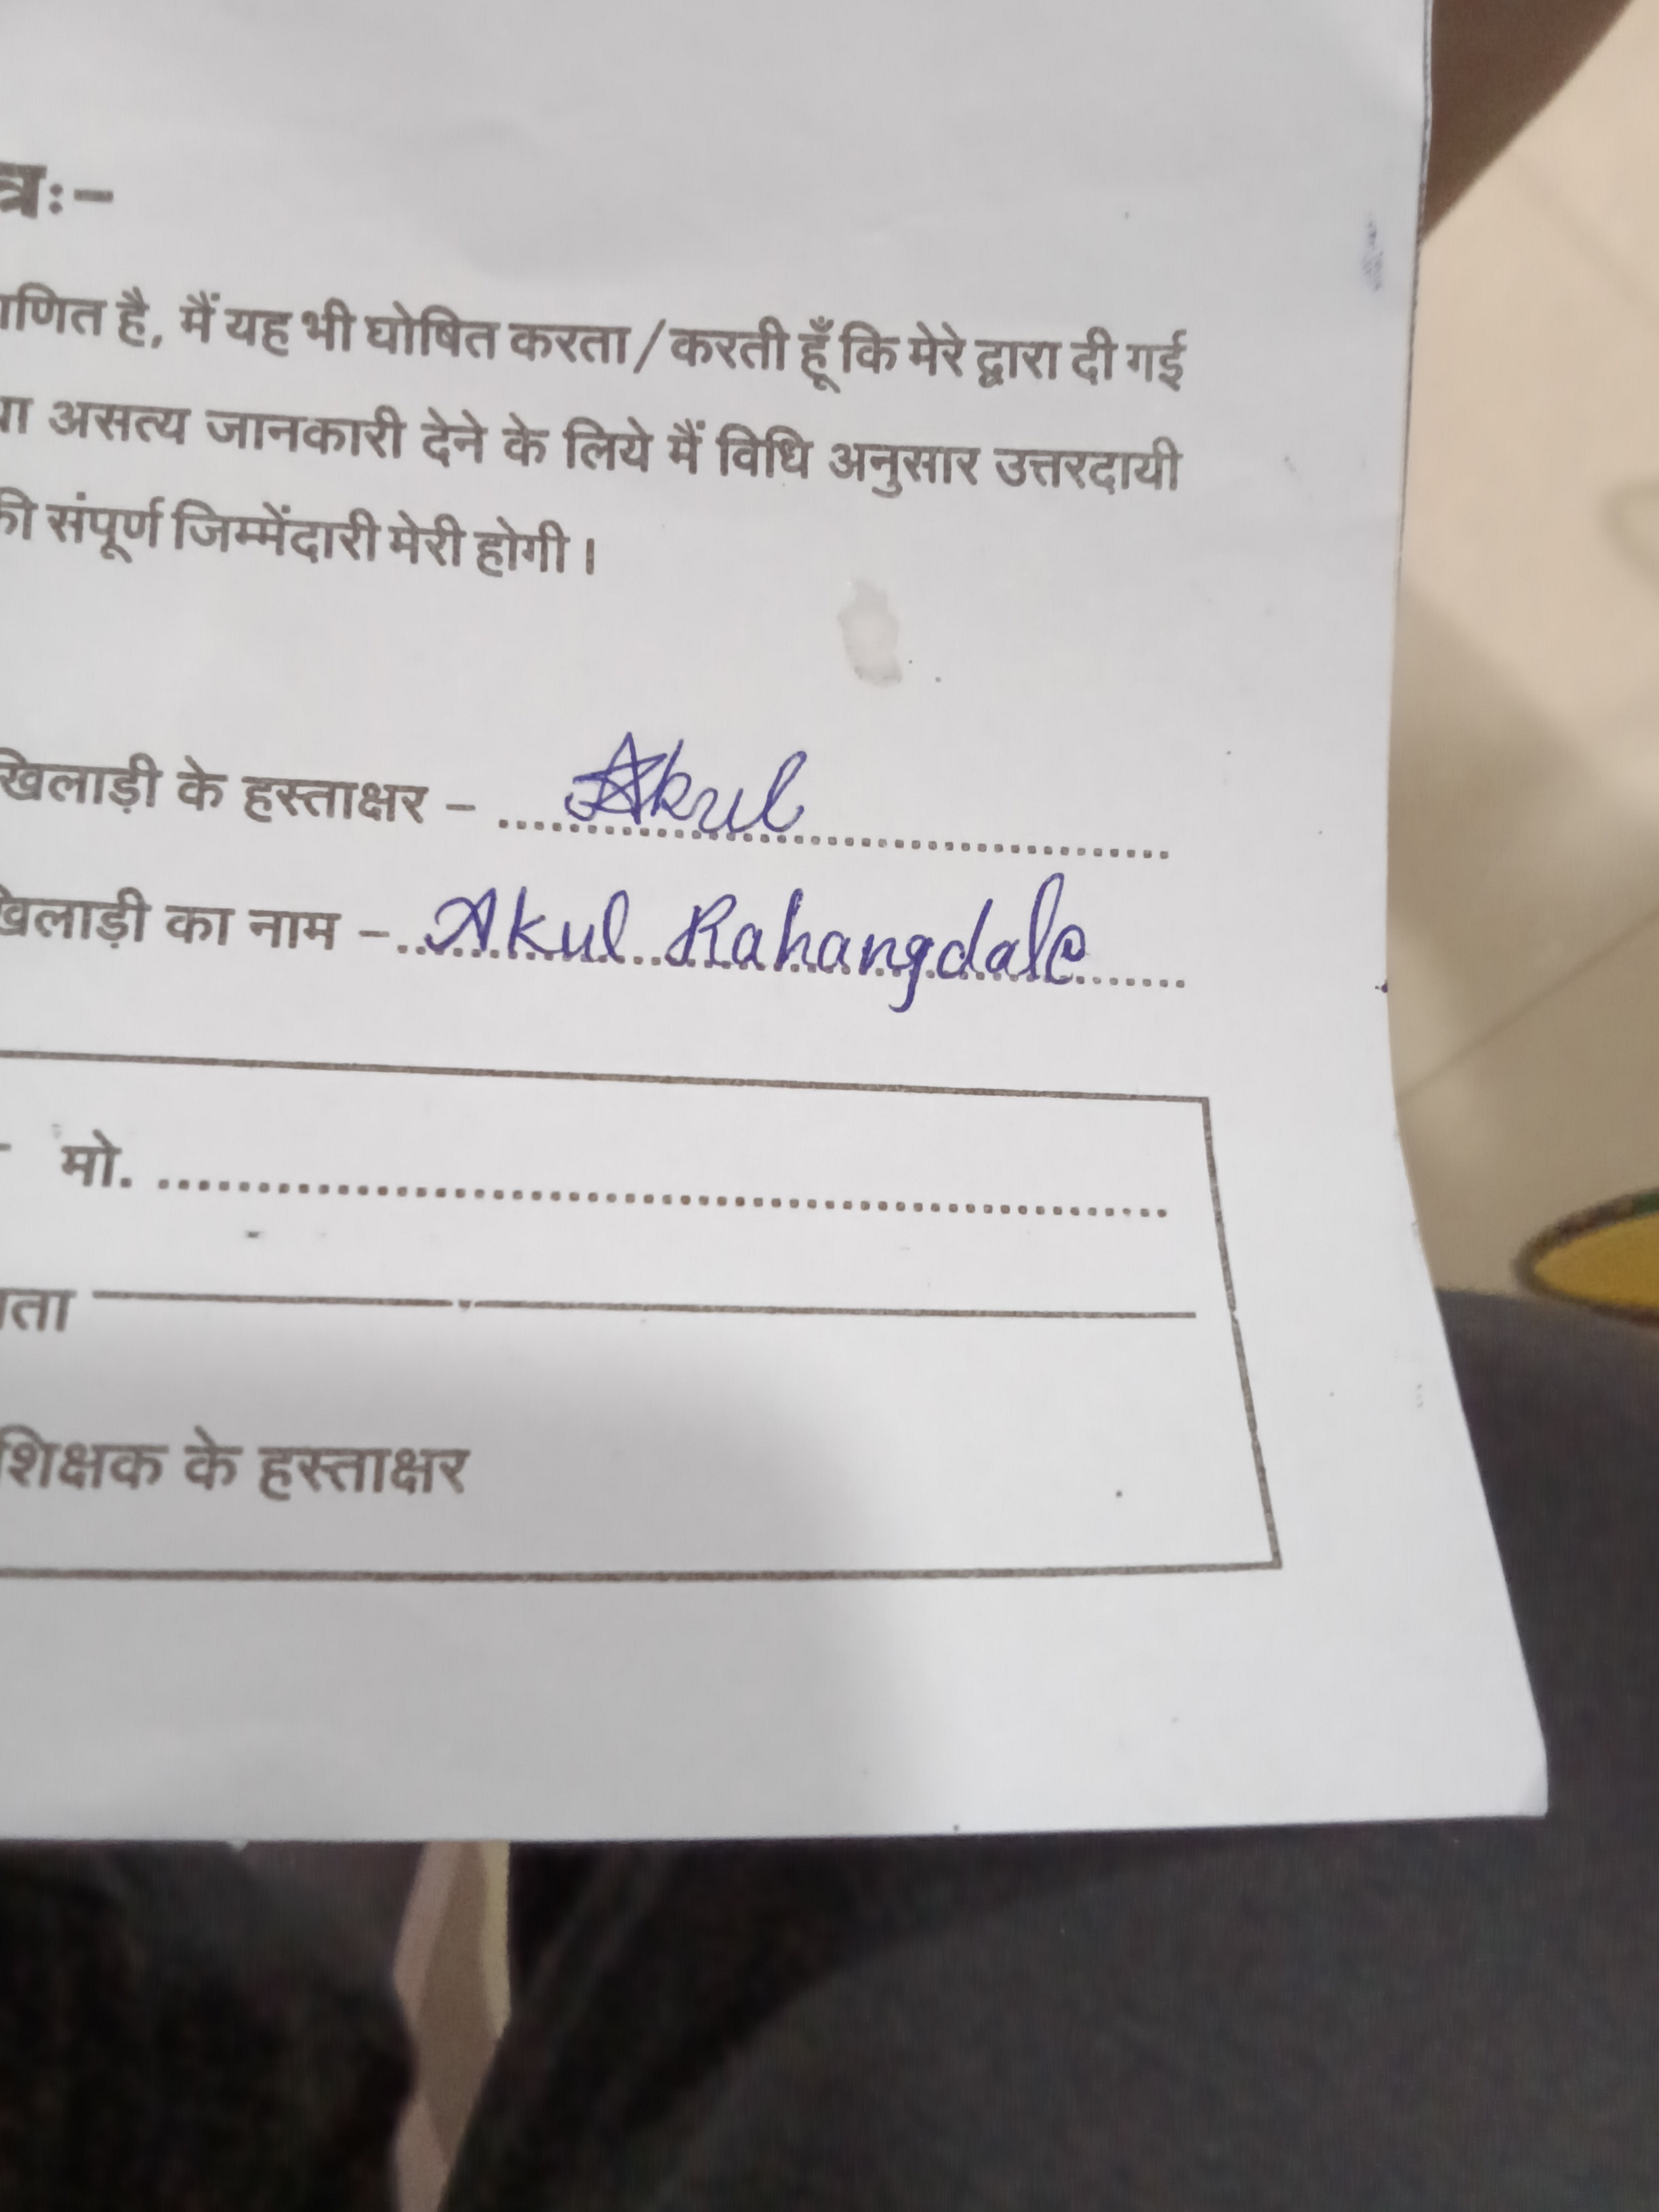 त्रः-
णित है, मैं यह भी घोषित करता/करती हूँ कि मेरे द्वारा दी गई
असत्य जानकारी देने के लिये मैं विधि अनुसार उत्तरदायी
की संपूर्ण जिम्मेंदारी मेरी होगी।
खिलाड़ी के हस्ताक्षर - Akul
खिलाड़ी का नाम - Akul Rahangdale
मो.
ता
शिक्षक के हस्ताक्षर